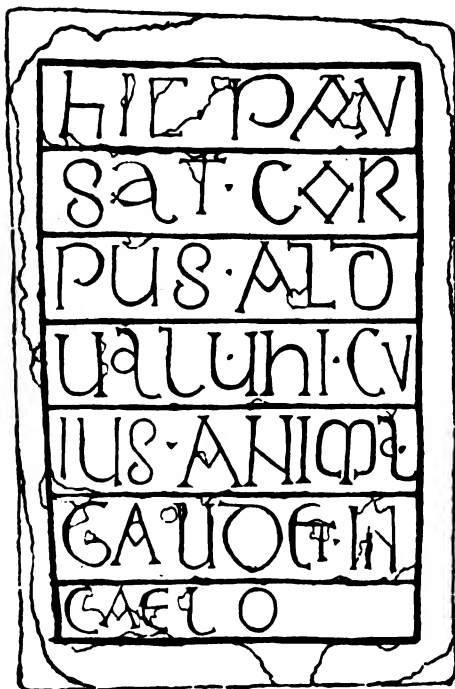 HIC PAV
SaT · COR
PUS · ALD
UaLUhI · CV
IUS · ANIMa
GAUDET · IN
CAELO